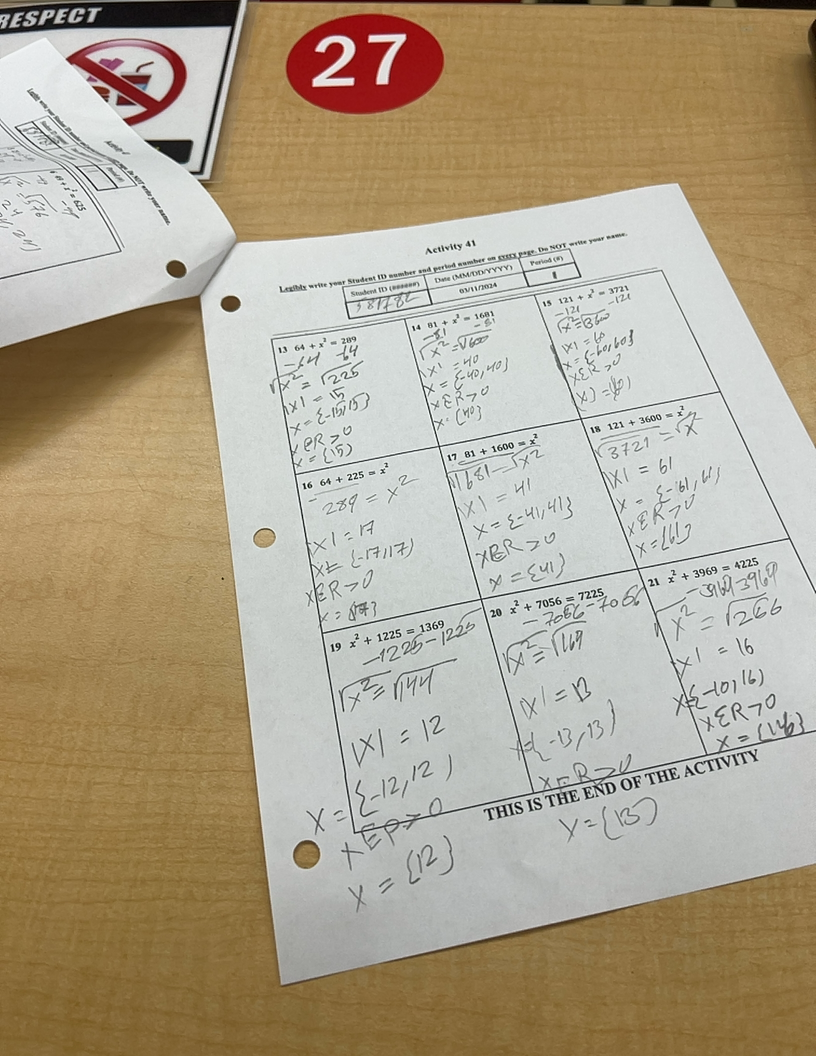 RESPECT
27
Activity 41
Legibly write your Student ID number and period number on every page. Do NOT write your name.
Student ID (######) Date (MM/DD/YYYY) Period (#)
03/11/2024 1
13 64 + x² = 289
-64 -64
√x² = √225
|x| = 15
x = {-15,15}
x ∈ R > 0
x = {15}
14 81 + x² = 1681
-81 -81
√x² = √1600
|x| = 40
x = {-40,40}
x ∈ R > 0
x = {40}
15 121 + x² = 3721
-121 -121
√x² = √3600
x ∈ R > 0
16 64 + 225 = x²
289 = x²
|x| = 17
x = {-17,17}
x ∈ R > 0
17 81 + 1600 = x²
√1681 = √x²
|x| = 41
x = {-41,41}
x ∈ R > 0
x = {41}
18 121 + 3600 = x²
√3721 = √x²
|x| = 61
x = {-61,61}
x ∈ R > 0
x = {61}
19 x² + 1225 = 1369
-1225 -1225
√x² = √144
|x| = 12
x = {-12,12}
x ∈ R > 0
x = {12}
20 x² + 7056 = 7225
-7056 -7056
√x² = √169
|x| = 13
x = {-13,13}
x ∈ R > 0
x = {13}
21 x² + 3969 = 4225
-3969 -3969
√x² = √256
|x| = 16
x ∈ R > 0
x = {16}
THIS IS THE END OF THE ACTIVITY